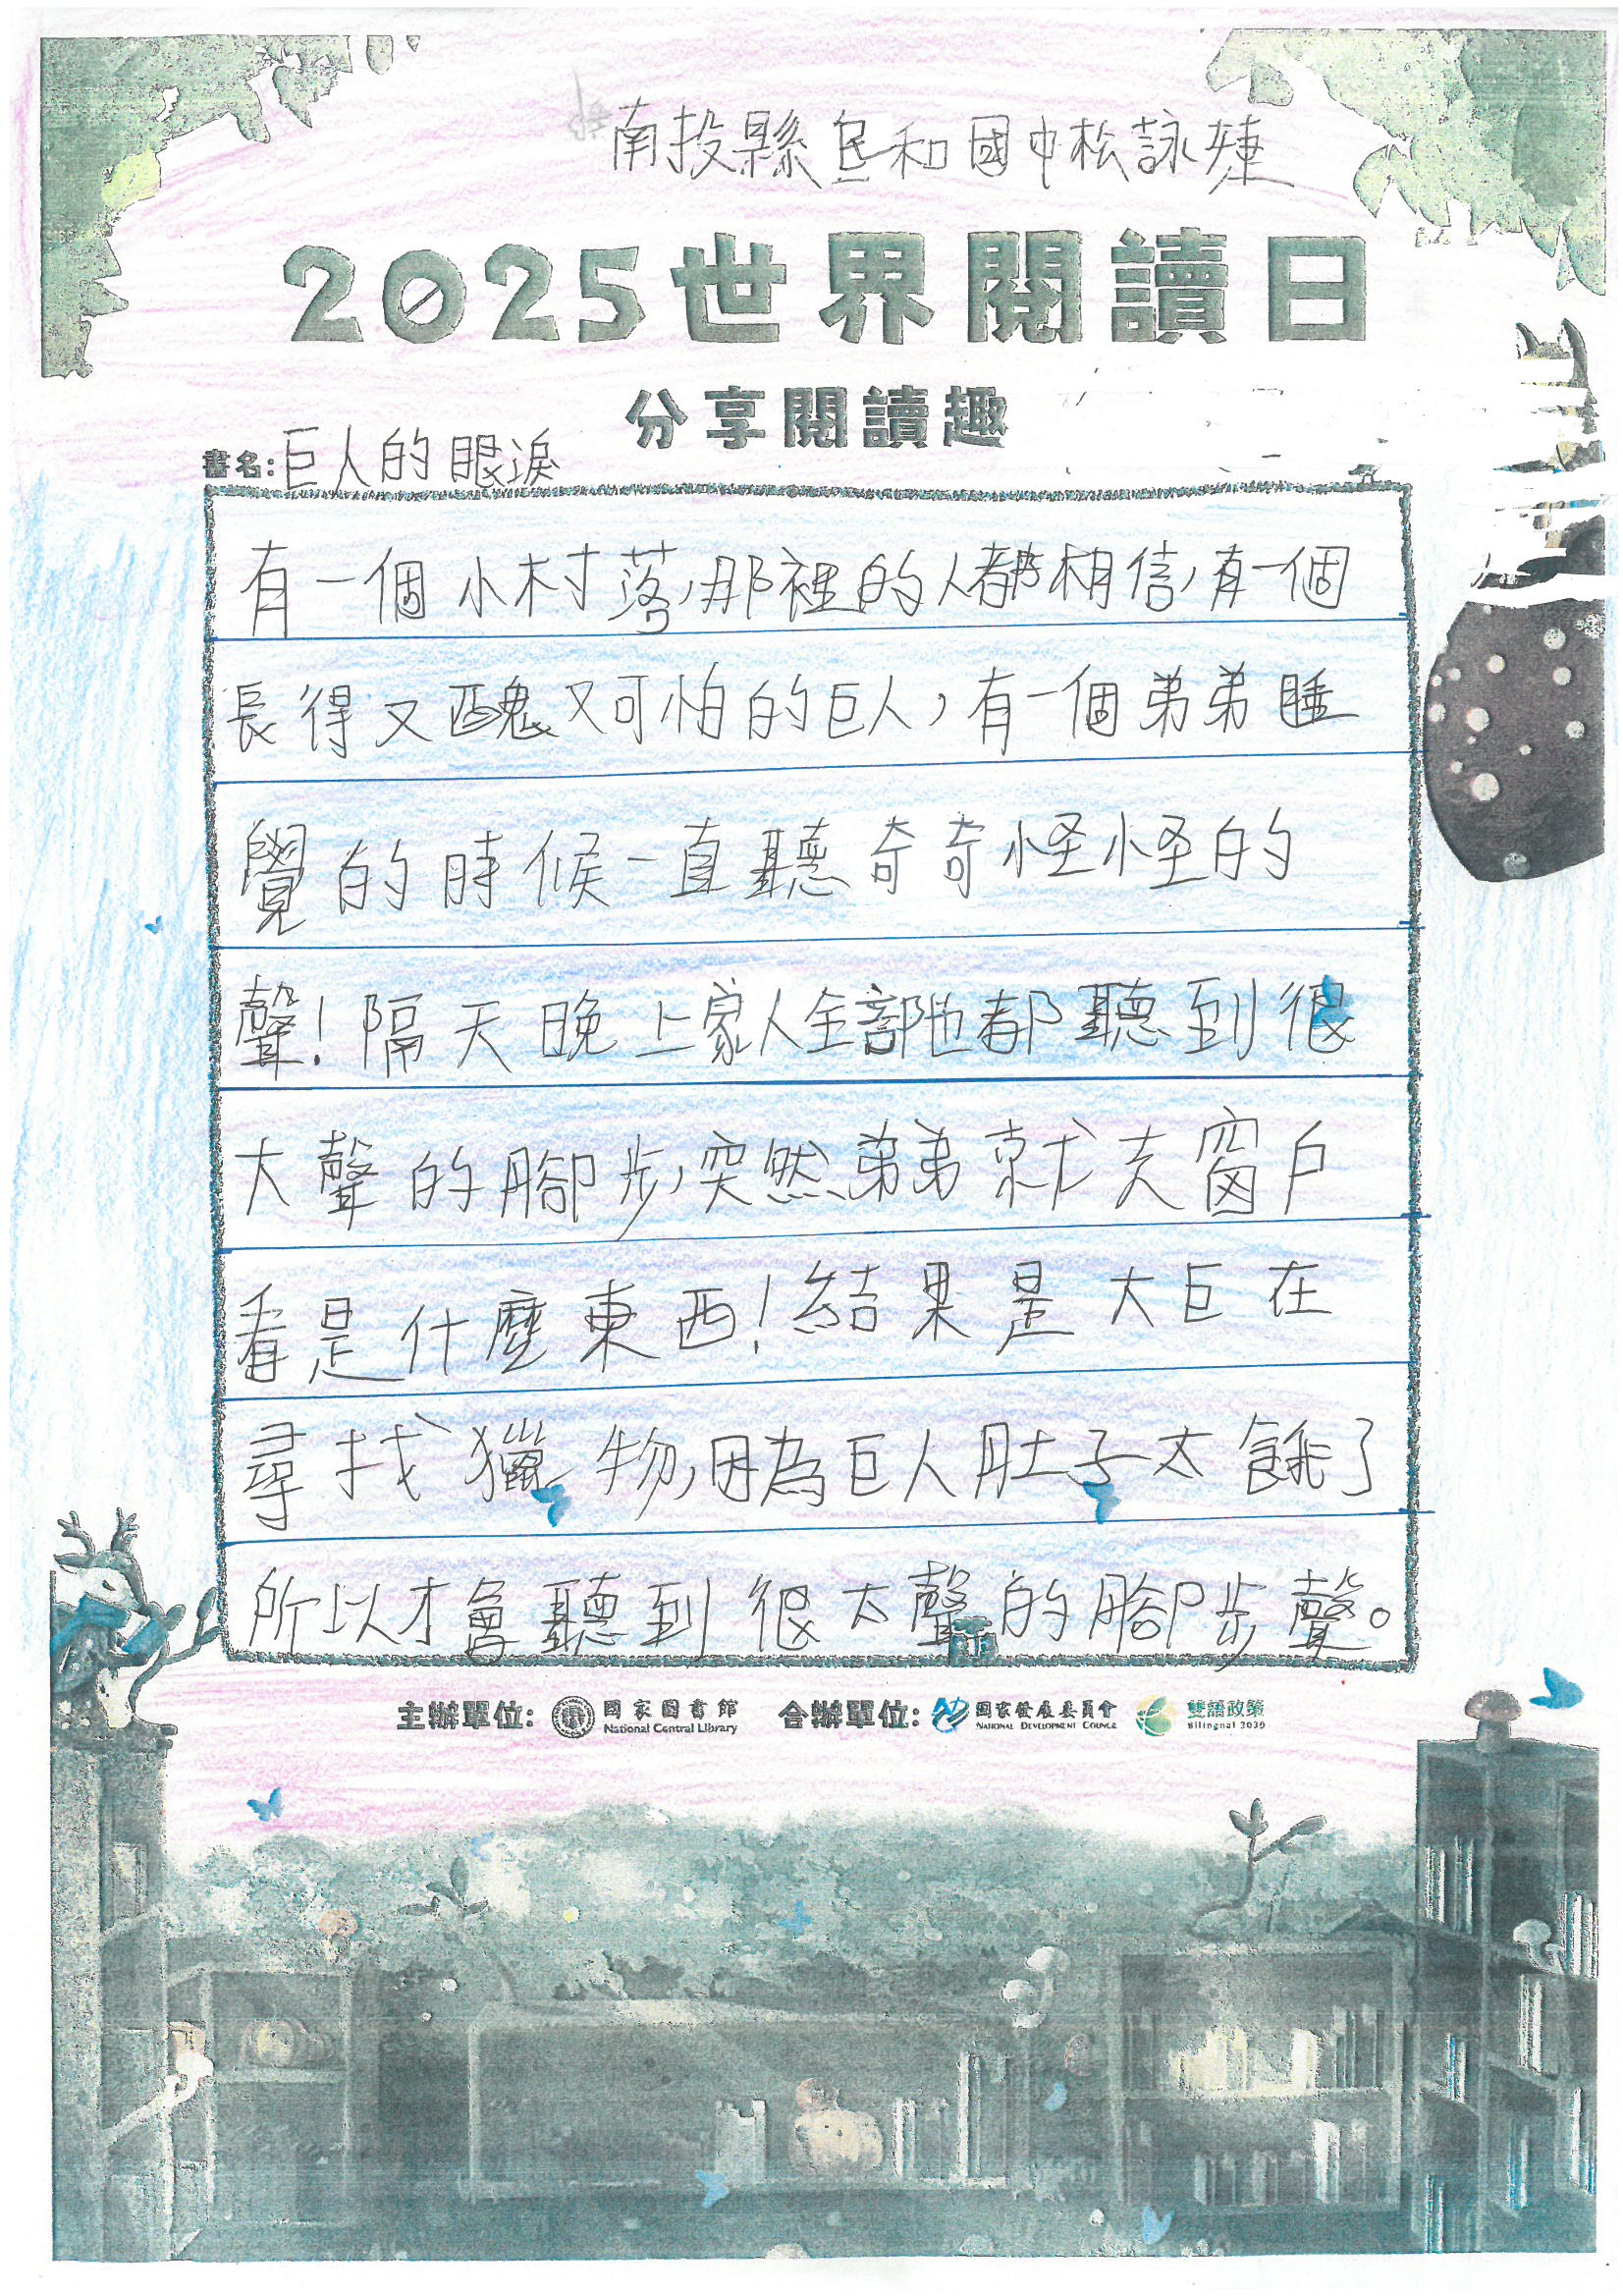 南投縣民和國中松詠婕
2025世界閱讀日
分享閱讀趣
書名:巨人的眼淚
有一個小村落,那裡的人都相信,有一個
長得又醜又可怕的巨人,有一個弟弟睡
覺的時候一直聽奇奇怪怪的
聲!隔天晚上家人全部也都聽到很
大聲的腳步,突然弟弟就去窗戶
看是什麼東西!結果是大巨在
尋找獵物,因為巨人肚子太餓了
所以才會聽到很大聲的腳步聲。
主辦單位: 國家圖書館 National Central Library 合辦單位: 國家發展委員會 NATIONAL DEVELOPMENT COUNCIL 雙語政策 Bilingual 2030